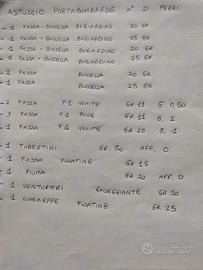 ASTUCCIO PORTABOMBARDE N° 21 PEZZI
- 1 FASSA - BUCCELLA BUGIARDINO 10 GR
- 1 FASSA - BUCCELLA BUGIARDINO 15 GR
- 1 FASSA - BUCCELLA BUGIARDINO 20 GR
- 1 FASSA - BUCCELLA BUGIARDINO 25 GR
- 1 FASSA BUCCELLA 20 GR
- 1 FASSA BUCCELLA 25 GR
- 2 FASSA F1 WHITE GR 11 G. 0,50
- 3 FASSA F1 BLUE GR 11 G. 2
- 1 FASSA F1 WHITE GR 20 G. 1
- 1 TUBERTINI GR 50 AFF. 0
- 1 FASSA FLOATING GR 15
- 1 PIUMA GR 20 AFF. 0
- 1 VENTURIERI GALLEGGIANTE GR 20
- 1 LINEAEFFE FLOATING GR 25
subito